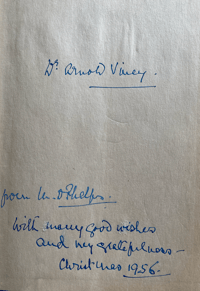 Dr. Arnold Viney.
from M. D Phelps.
With many good wishes
and my gratefulness –
Christmas 1956.